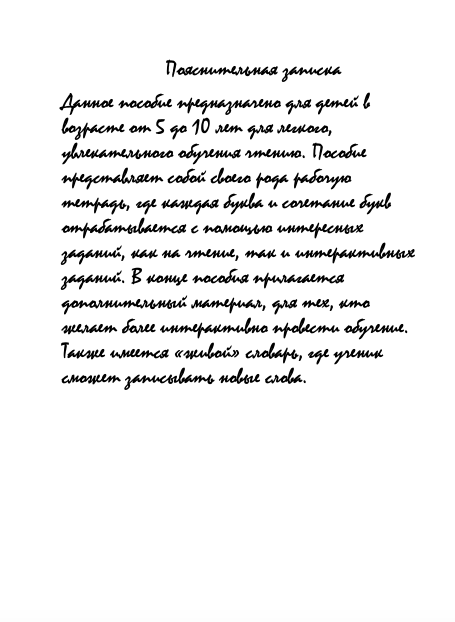 Пояснительная записка
Данное пособие предназначено для детей в
возрасте от 5 до 10 лет для легкого,
увлекательного обучения чтению. Пособие
представляет собой своего рода рабочую
тетрадь, где каждая буква и сочетание букв
отрабатывается с помощью интересных
заданий, как на чтение, так и интерактивных
заданий. В конце пособия прилагается
дополнительный материал, для тех, кто
желает более интерактивно провести обучение.
Также имеется «живой» словарь, где ученик
сможет записывать новые слова.